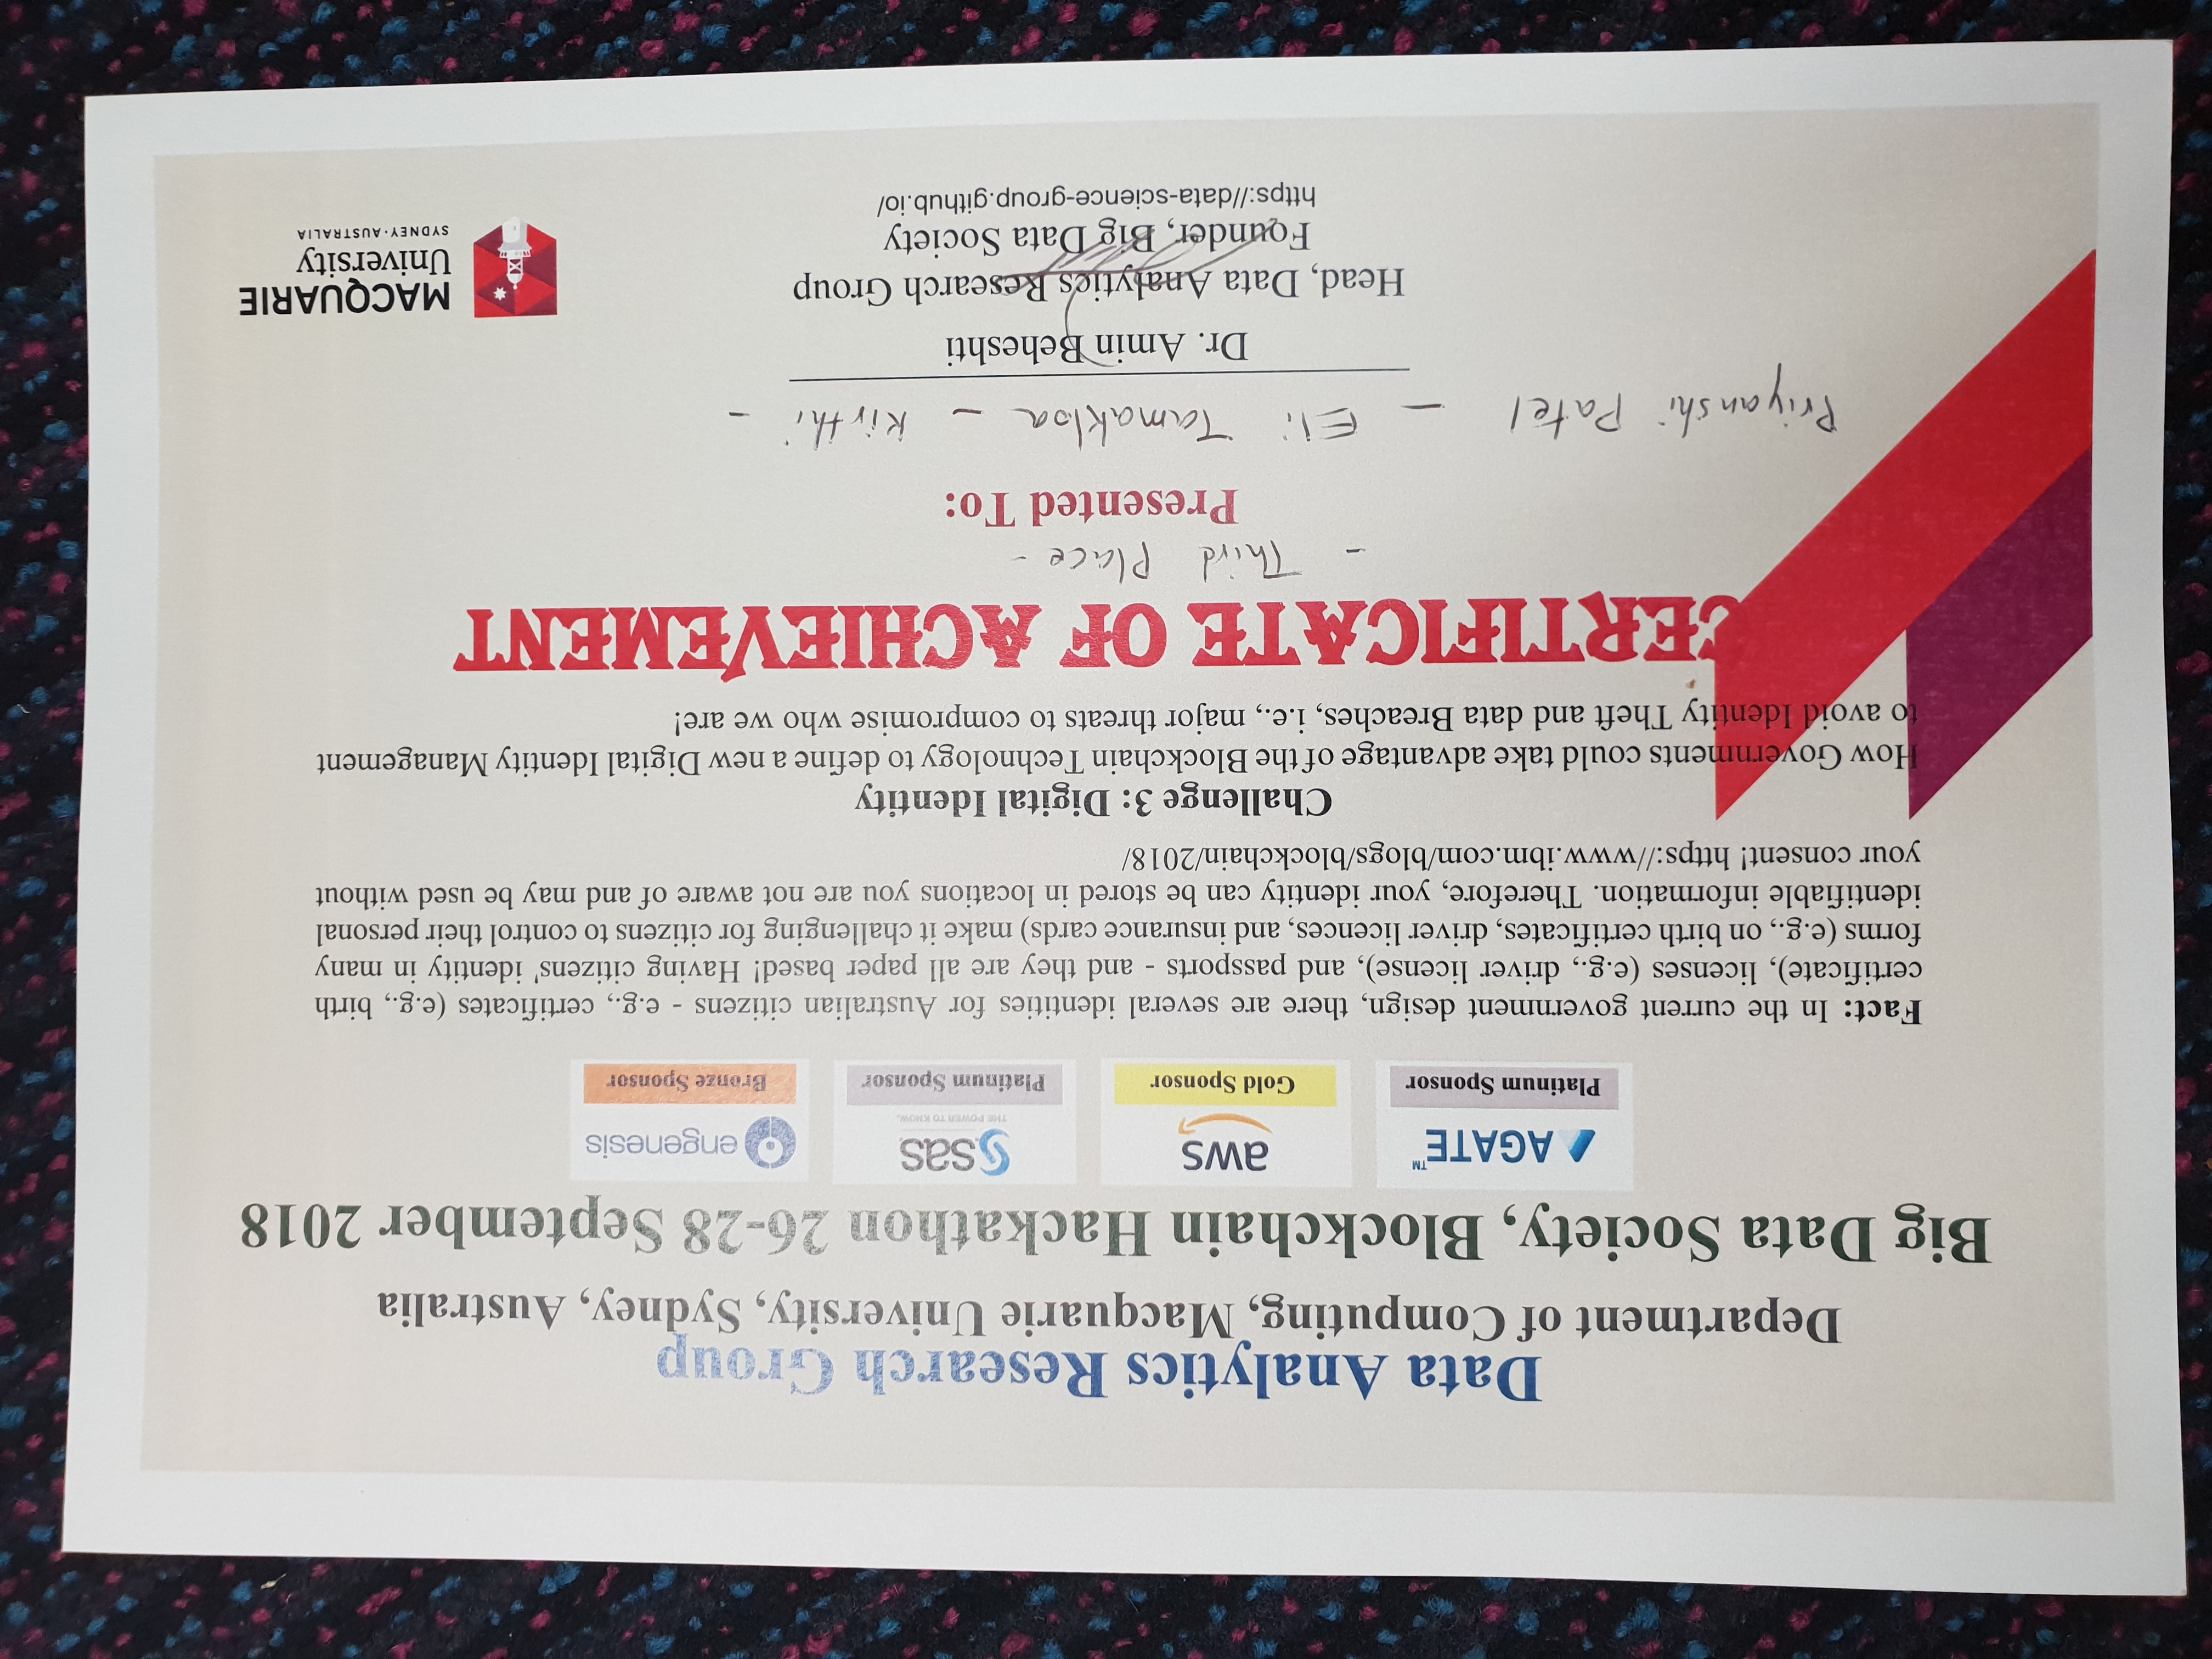 Data Analytics Research Group
Department of Computing, Macquarie University, Sydney, Australia
Big Data Society, Blockchain Hackathon 26-28 September 2018
AGATE™
Platinum Sponsor
aws
Gold Sponsor
sas
THE POWER TO KNOW.
Platinum Sponsor
engenesis
Bronze Sponsor
Fact: In the current government design, there are several identities for Australian citizens - e.g., certificates (e.g., birth
certificate), licenses (e.g., driver license), and passports - and they are all paper based! Having citizens' identity in many
forms (e.g., on birth certificates, driver licences, and insurance cards) make it challenging for citizens to control their personal
identifiable information. Therefore, your identity can be stored in locations you are not aware of and may be used without
your consent! https://www.ibm.com/blogs/blockchain/2018/
Challenge 3: Digital Identity
How Governments could take advantage of the Blockchain Technology to define a new Digital Identity Management
to avoid Identity Theft and data Breaches, i.e., major threats to compromise who we are!
CERTIFICATE OF ACHIEVEMENT
- Third Place -
Presented To:
Priyanshi Patel - Eli Tamakloa - Kirthi -
Dr. Amin Beheshti
Head, Data Analytics Research Group
Founder, Big Data Society
https://data-science-group.github.io/
MACQUARIE
University
SYDNEY·AUSTRALIA